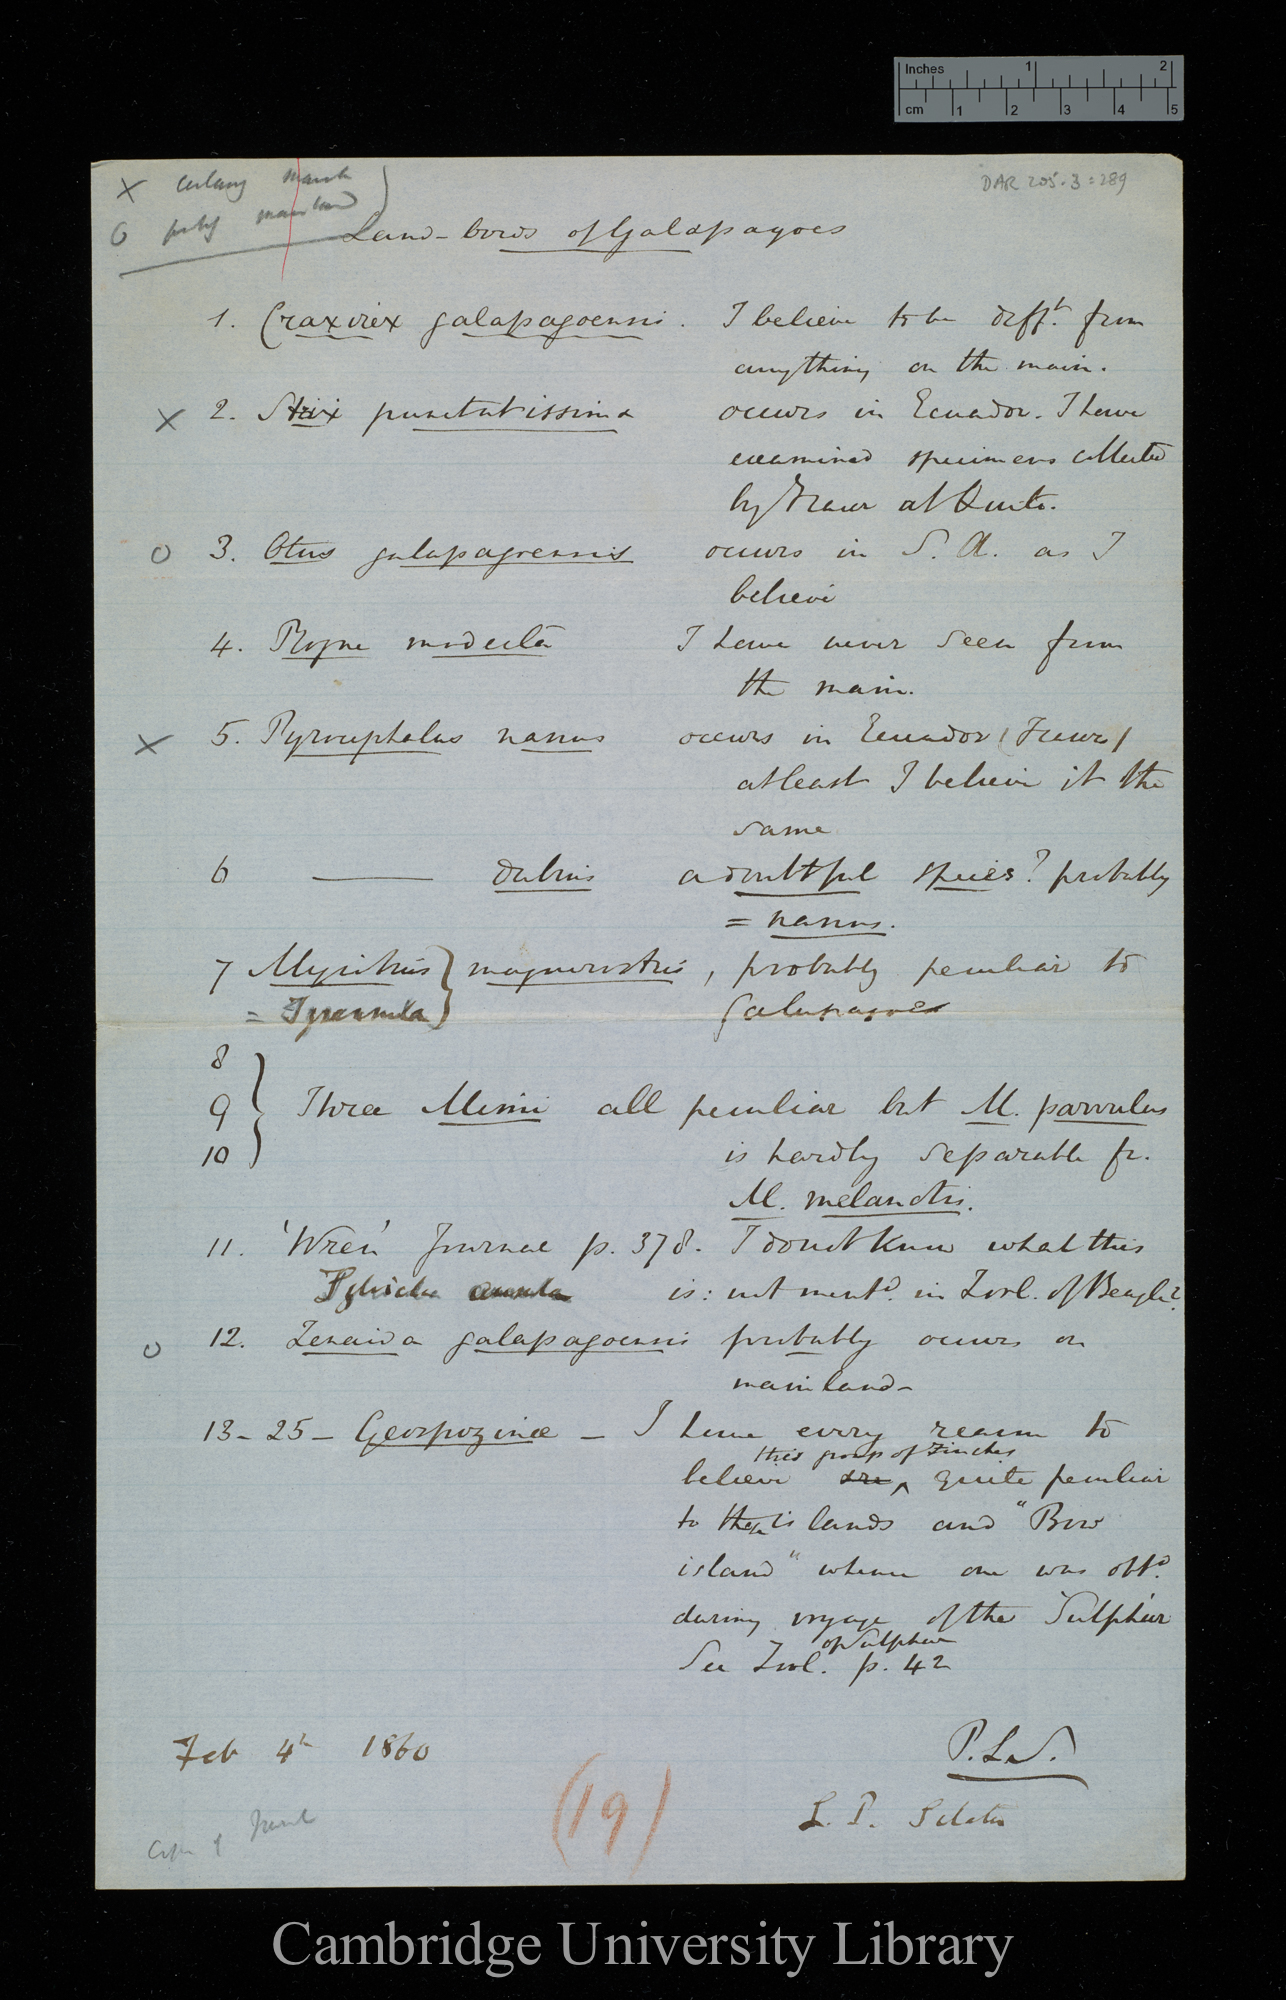 Inches 1 2
cm 1 2 3 4 5
DAR 205.3:289
X certainly mainla
O probably mainland
Land-birds of Galapagoes
1. Craxirex galapagoensis. I believe to be difft. from
anything on the main.
X 2. Strix punctatissima occurs in Ecuador. I have
examined specimens collected
by Fraser at Quito.
O 3. Otus galapagoensis occurs in S. A. as I
believe
4. Progne modesta I have never seen from
the main.
X 5. Pyrocephalus nanus occurs in Ecuador (Fraser)
at least I believe it the
same
6 —— dubius a doubtful species? probably
= nanus.
7 Myiobius } magnirostris, probably peculiar to
= Tyrannula } Galapagoes
8
9 } Three Mimi all peculiar but M. parvulus
10 is hardly separable fr.
M. melanotis.
11. 'Wren' Journal p. 378. I don't know what this
Sylvicola aureola is: not mentd. in Zool. of Beagle?
O 12. Zenaida galapagoensis probably occurs on
mainland-
13-25- Geospozinæ - I have every reason to
this group of Finches
believe are ^ quite peculiar
to these islands and "Bow
island" whence one was obtd.
during voyage of the Sulphur
of Sulphur
See Zool. p. 42
Feb 4th 1860
P. L. S.
(19)
L. P. Sclater
Cambridge University Library